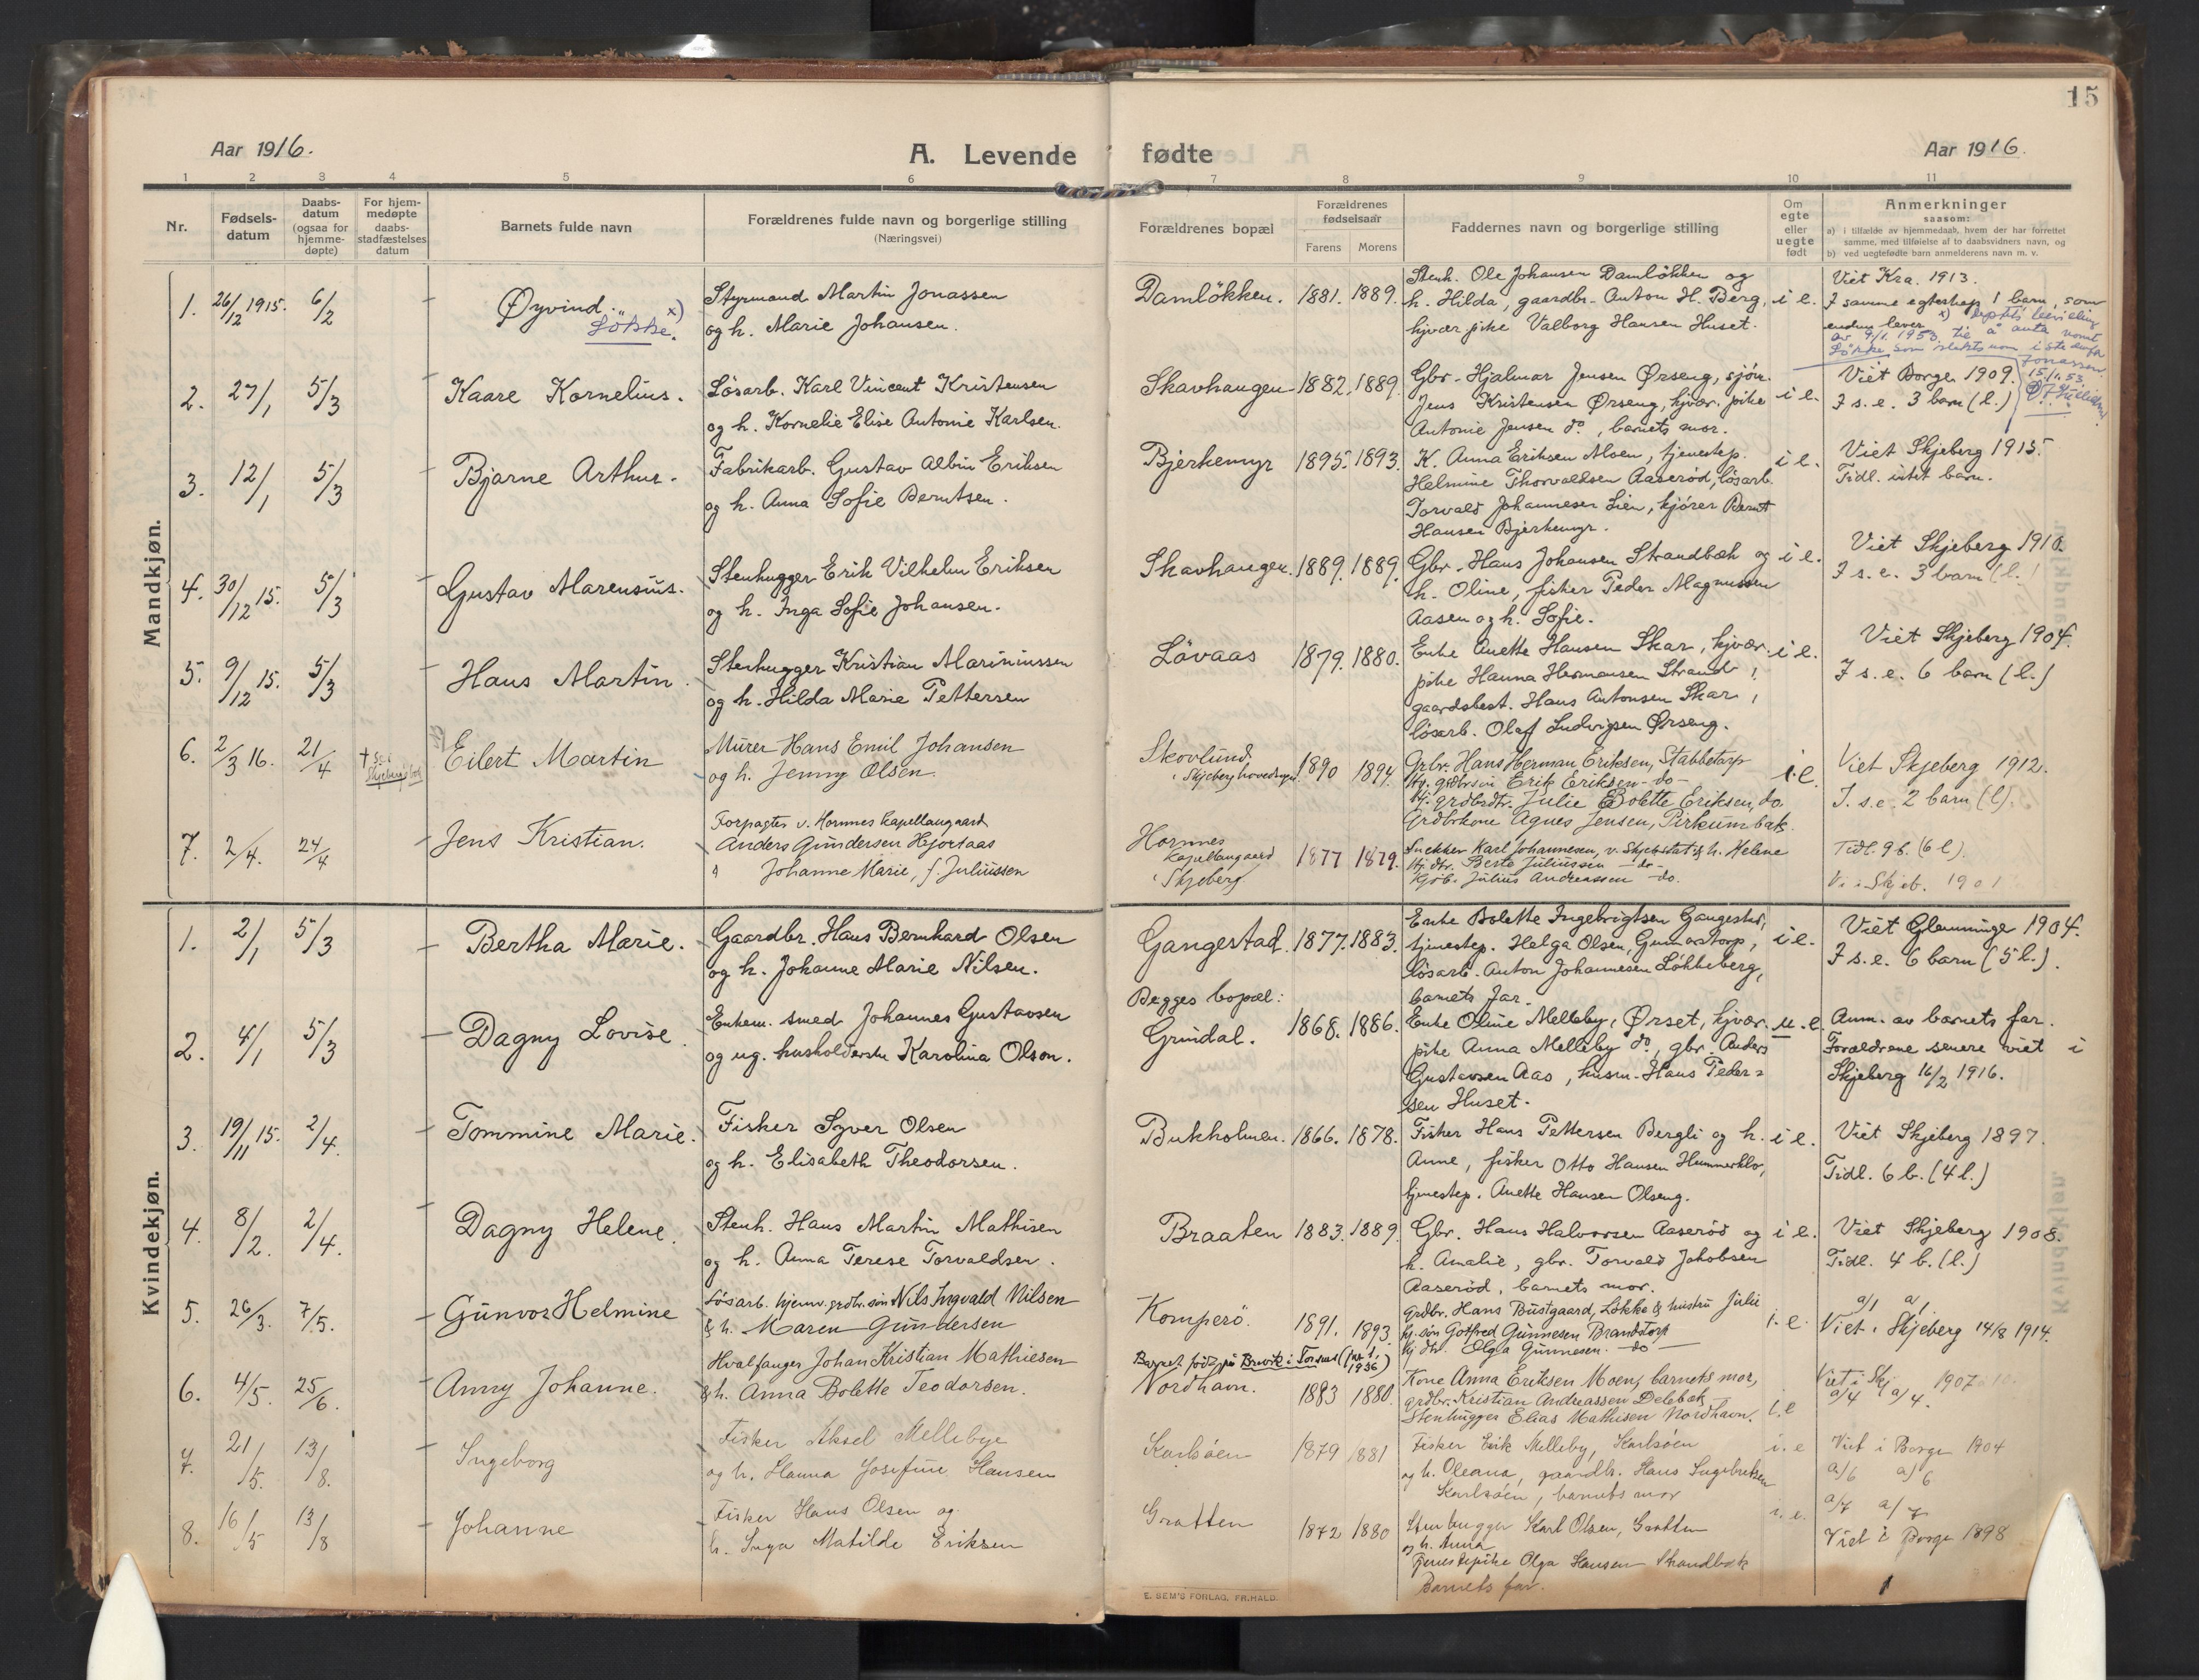 15
Aar 1916.
A. Levende fødte
Aar 1916.
1 2 3 4 5 6 7 8 9 10 11
Nr.
Fødsels-
datum
Daabs-
datum
(ogsaa for
hjemme-
døpte)
For hjem-
medøpte
daabs-
stadfæstelses
datum
Barnets fulde navn
Forældrenes fulde navn og borgerlige stilling
(Næringsvei)
Forældrenes bopæl
Forældrenes
fødselsaar
Farens Morens
Faddernes navn og borgerlige stilling
Om
egte
eller
uegte
født
Anmerkninger
saasom:
a) i tilfælde av hjemmedaab, hvem der har forrettet
samme, med tilføielse af to daabsvidners navn, og
b) ved uegtefødte barn anmelderens navn m. v.
Mandkjøn.
1. 26/12 1915. 6/2 - Øyvind. x)
Løkke.
Styrmand Martin Jonassen
og h. Marie Johansen.
Damløkken. 1881. 1889.
Stenh. Ole Johansen Damløkken og
h. Hilda, gaardbr. Anton H. Berg,
hjvær. pike Valborg Hansen Huset.
i e.
Viet Kra. 1913.
I samme egteskap 1 barn, som
endnu lever.
x)
av 9/1 1953 til å anta navnet
Løkke som slektsnavn istedenfor
Jonassen.
15/1.53
2. 27/1 5/3 Kaare Kornelius.
Løsarb. Karl Vincent Kristensen
og h. Kornelie Elise Antonie Karlsen.
Skavhaugen 1882. 1889.
Gbr. Hjalmar Jensen Ørseng, sjøm.
Jens Kristensen Ørseng, hjvær. pike
Antonie Jensen do, barnets mor.
i e.
Viet Borge 1909.
I s. e. 3 barn (l.)
3. 12/1 5/3 - Bjarne Arthur.
Fabrikarb. Gustav Albin Eriksen
og h. Anna Sofie Berntsen.
Bjerkemyr 1895. 1893.
K. Anna Eriksen Moen, tjenestep.
Helmine Thorvaldsen Aaserød, løsarb.
Torvald Johannesen Lien, kjører Bernt
Hansen Bjerkemyr.
i e.
Viet Skjeberg 1915.
Tidl. intet barn.
4. 30/12 15. 5/3 - Gustav Marensius.
Stenhugger Erik Vilhelm Eriksen
og h. Inga Sofie Johansen.
Skavhaugen. 1889. 1889.
Gbr. Hans Johansen Strandbæk og
h. Oline, fisker Peder Magnussen
Aasen og h. Sofie.
i e.
Viet Skjeberg 1910.
I s. e. 3 barn (l.)
5. 9/12 15. 5/3 - Hans Martin.
Stenhugger Kristian Mariniussen
og h. Hilda Marie Pettersen
Løvaas 1879. 1880.
Enke Anette Hansen Skar, hjvær.
pike Hanna Hermansen Strand,
gaardsbest. Hans Antonsen Skar,
løsarb. Olaf Ludvigsen Ørseng.
i e.
Viet Skjeberg 1904.
I s. e. 6 barn (l.)
6. 2/3 16. 21/4 † Skjeberg Eilert Martin
Murer Hans Emil Johansen
og h. Jenny Olsen.
Skovlund,
i Skjeberg hovedsogn. 1890 1894
Grbr. Hans Herman Eriksen, Stabbetorp
Hj. grdbrsøn Erik Eriksen - do -
Hj. grdbrdtr. Julie Bolette Eriksen, do.
Grdbrkone Agnes Jensen, Pirkumbak.
i. e.
Viet Skjeberg 1912.
I. s. e. 2 barn (l).
7. 2/4. 24/4 - Jens Kristian.
Forpagter v. Hornnes kapellangaard
Anders Gundersen Hjortaas
Johanne Marie, f. Juliussen
Hornnes
kapellangaard
i Skjeberg 1877 1879.
Snekker Karl Johannesen, v. Skjebstat & h. Helene
Hj. dtr. Berte Juliussen - do -
Kjøb. Julius Andreassen do.
Tidl. 9 b. (6 l).
Vi i Skjeb. 1901
Kvindekjøn.
1. 2/1 5/3 - Bertha Marie.
Gaardbr. Hans Bernhard Olsen
og h. Johanne Marie Nilsen.
Gangestad. 1877. 1883.
Enke Bolette Ingebrigtsen Gangestad,
tjenestep. Helga Olsen, Gunnarstorp,
løsarb. Anton Johannesen Løkkeberg,
barnets far.
i e.
Viet Glemminge 1904.
I s. e. 6 barn (5 l.).
2. 4/1 5/3 - Dagny Lovise.
Enkem. smed Johannes Gustavsen
og ug. husholderske Karolina Olson.
Begges bopæl:
Grimdal. 1868. 1886.
Enke Oline Melleby, Ørset, hjvær.
pike Anna Melleby do, gbr. Anders
Gustavsen Aas, husm. Hans Peder-
sen Huset.
u. e.
Anm. av barnets far.
Forældrene senere viet i
Skjeberg 16/2 1916.
3. 19/11 15. 2/4. - Tommine Marie.
Fisker Syver Olsen
og h. Elisabeth Theodorsen.
Bukholmen. 1866. 1878.
Fisker Hans Pettersen Bergli og h.
Anne, fisker Otto Hansen Hummerklo,
tjenestep. Anette Hansen Olseng.
i e.
Viet Skjeberg 1897.
Tidl. 6 b. (4 l.)
4. 8/2. 2/4. Dagny Helene.
Stenh. Hans Martin Mathisen
og h. Anna Terese Torvaldsen.
Braaten 1883. 1889.
Gbr. Hans Halvorsen Aaserød og
h. Amalie, gbr. Torvald Jakobsen
Aaserød, barnets mor.
i e.
Viet Skjeberg 1908.
Tidl. 4 b. (l.)
5. 26/3. 7/5. - Gunvor Helmine
Løsarb. hjemv. grdbr. søn Nils Ingvald Nilsen
& h. Maren Gundersen
Komperö. 1891. 1893
Grdbr. Hans Bustgaard, Løkke & hustru Julie
hj. søn Gotfred Gunnesen Brandstorp
hj. dtr. Olga Gunnesen. - do -
i. e.
a/1 a/1.
Viet i Skjeberg 14/8 1914.
6. 4/5. 25/6. - Anny Johanne.
Hvalfanger Johan Kristian Mathiesen
& h. Anna Bolette Teodorsen.
Barnet født på Brevik i Torsnes
Nordhavn. 1883 1880.
Kone Anna Eriksen Moen, barnets mor,
grdbr. Kristian Andreassen Delebæk
Stenhugger Elias Mathisen Nordhavn.
i. e
Viet i Skj 1907
a/4 a/4.
7. 21/5. 13/8. - Ingeborg
Fisker Aksel Mellebye
og h. Hanna Josefine Hansen
Karlsøen 1879 1881
Fisker Erik Melleby, Karlsøen
og h. Oleana, gaardbr. Hans Ingebretsen
Karlsøen, barnets mor
i. e
Viet i Borge 1904
a/6 a/6
8. 16/5 13/8 - Johanne
Fisker Hans Olsen og
h. Inga Matilde Eriksen
Gratten 1872 1880
Stenhugger Karl Olsen, Gratten
og h. Anna
Tjenestepike Olga Hansen Strandbæk
Barnets far.
i. e.
a/7 a/7
Viet i Borge 1898
E. SEM'S FORLAG, FR.HALD.